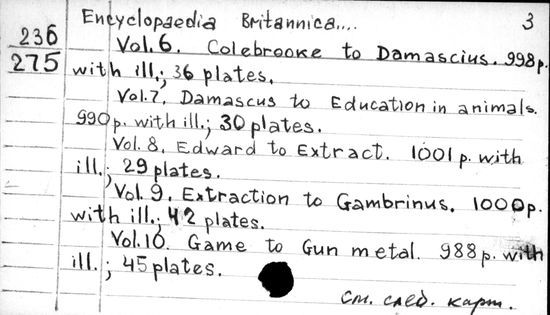 Encyclopaedia Britannica.... 3
236 Vol.6. Colebrooke to Damascius. 998p.
275 with ill.; 36 plates.
Vol.7. Damascus to Education in animals.
990p. with ill.; 30 plates.
Vol. 8. Edward to Extract. 1001 p. with
ill.; 29 plates.
Vol. 9. Extraction to Gambrinus. 1000p.
with ill.; 42 plates.
Vol.10. Game to Gun metal. 988 p. with
ill.; 45 plates.
См. след. карт.